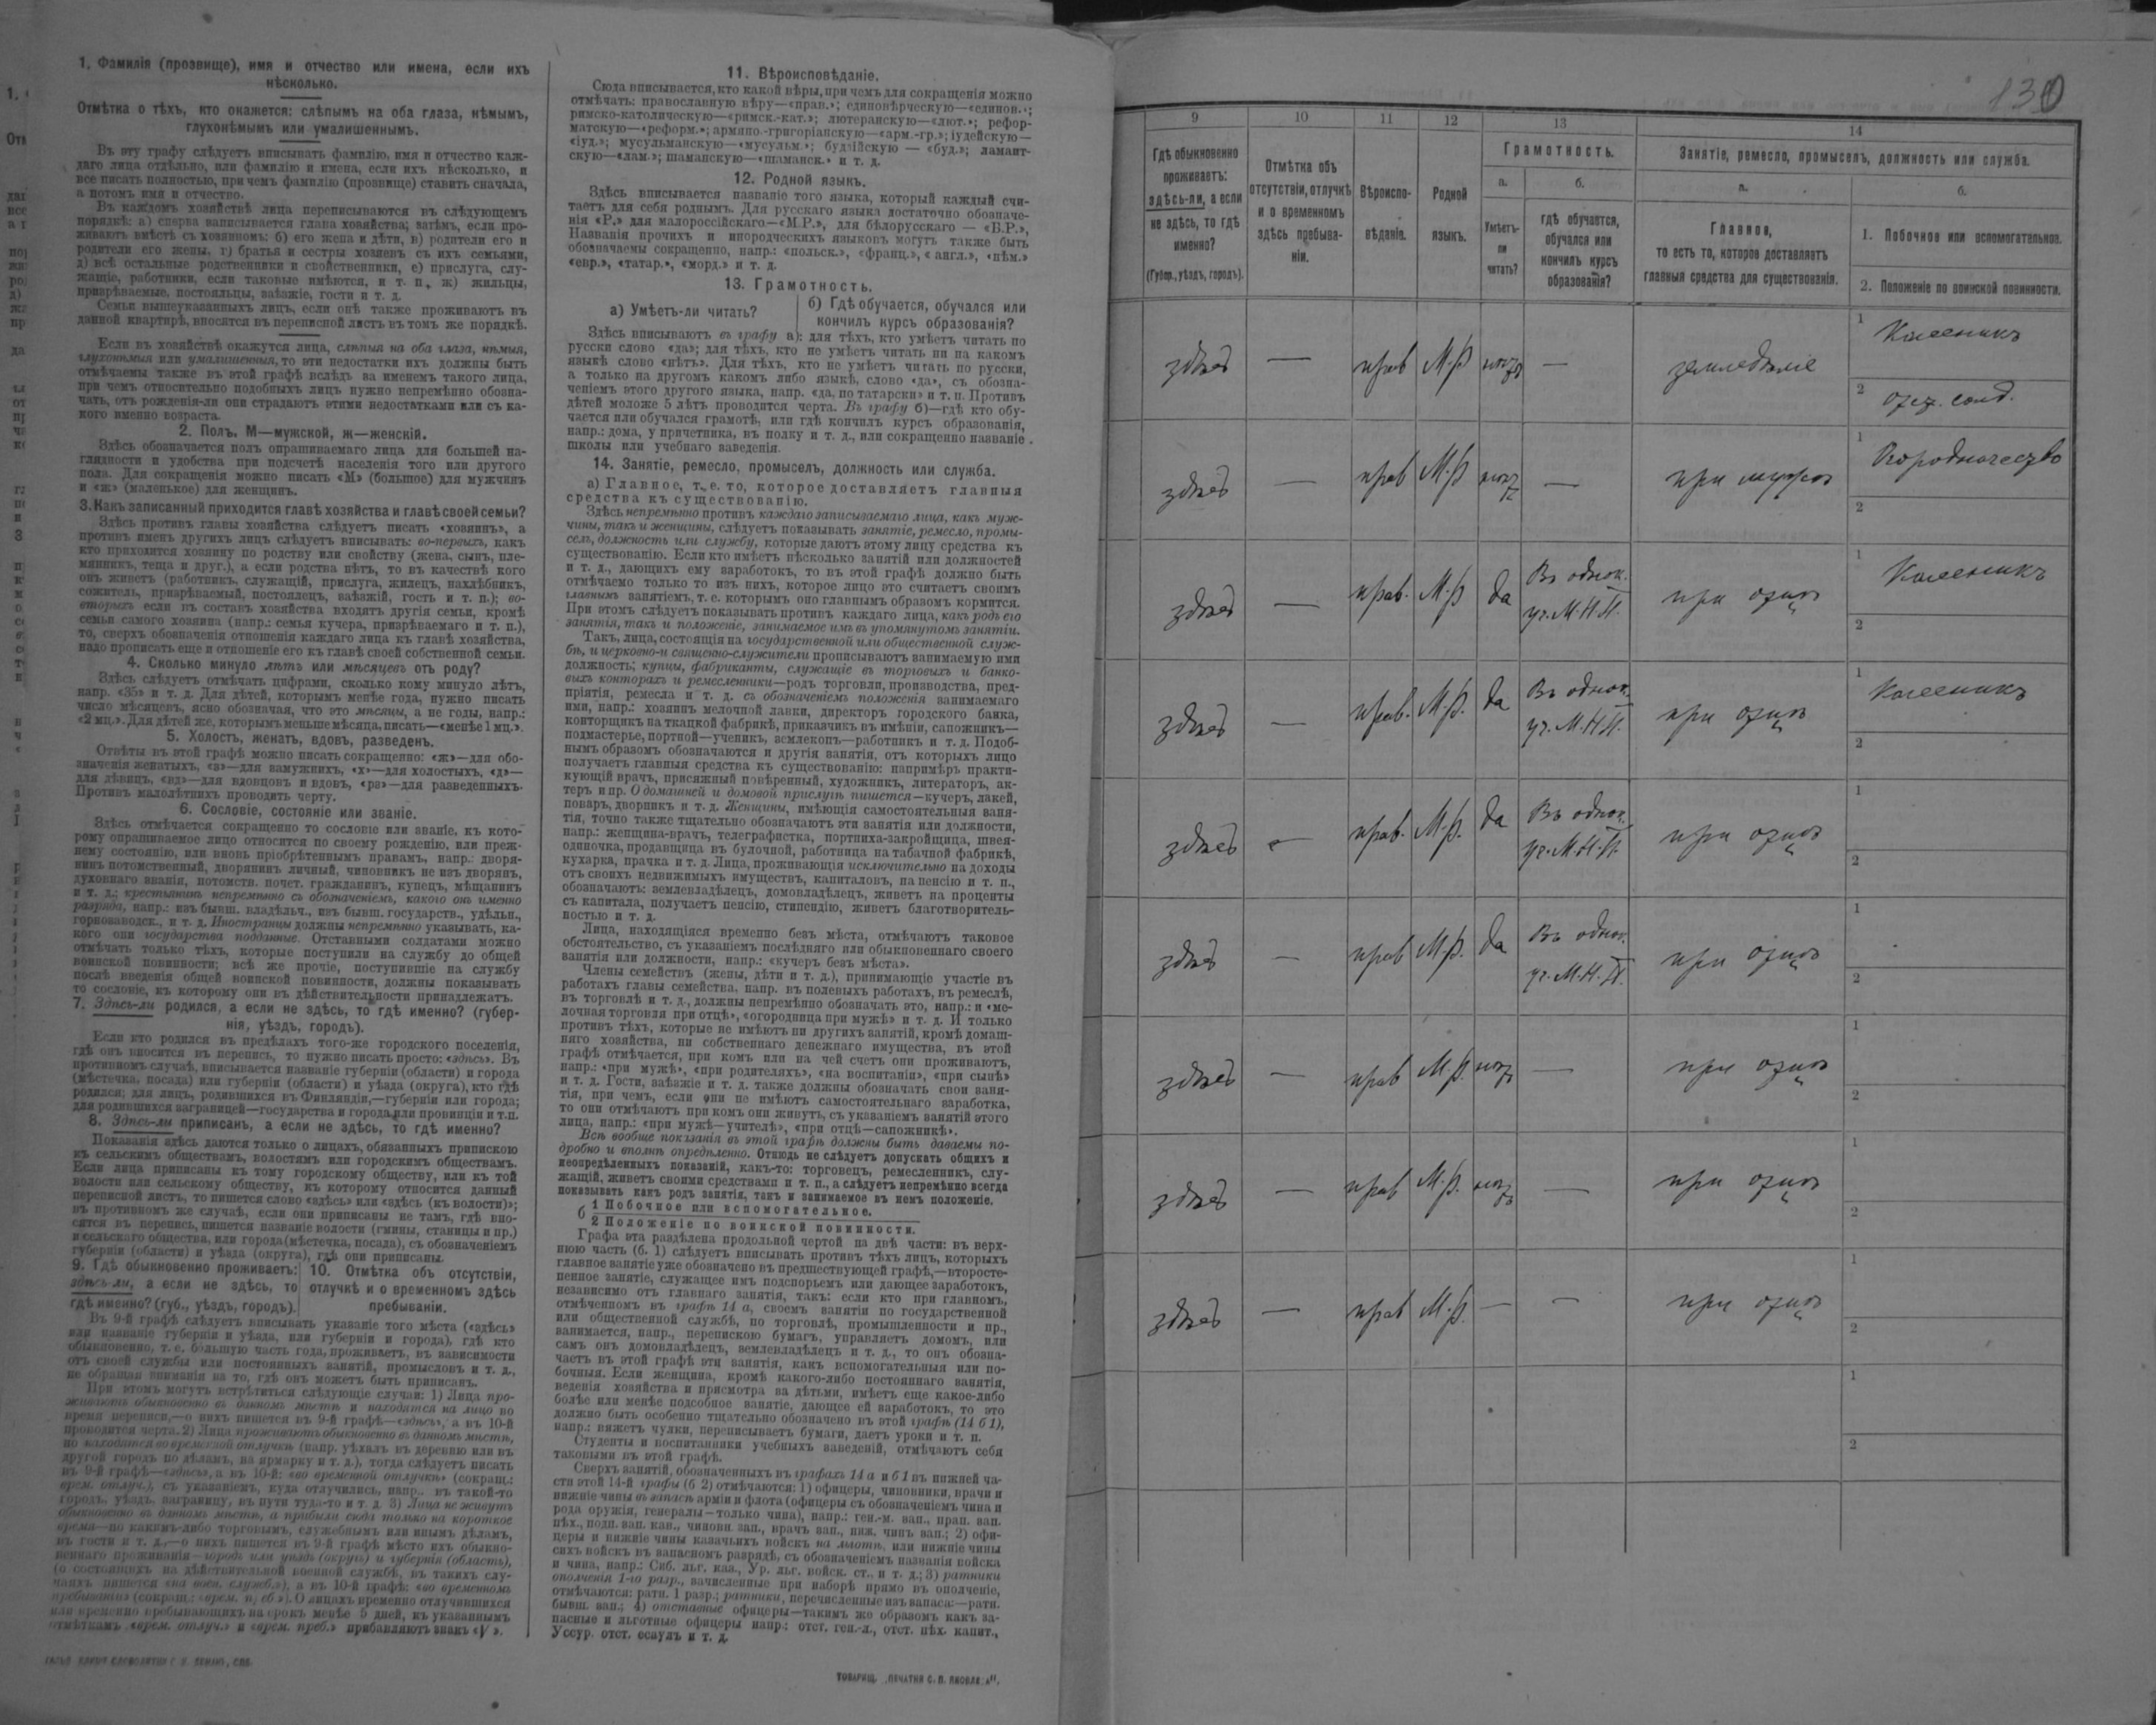 1. Фамилія (прозвище), имя и отчество или имена, если ихъ
нѣсколько.
Отмѣтка о тѣхъ, кто окажется: слѣпымъ на оба глаза, нѣмымъ,
глухонѣмымъ или умалишеннымъ.
Въ эту графу слѣдуетъ вписывать фамилію, имя и отчество каж-
даго лица отдѣльно, или фамилію и имена, если ихъ нѣсколько, и
все писать полностью, при чемъ фамилію (прозвище) ставить сначала,
а потомъ имя и отчество.
Въ каждомъ хозяйствѣ лица переписываются въ слѣдующемъ
порядкѣ: а) сперва записывается глава хозяйства; затѣмъ, если про-
живаютъ вмѣстѣ съ хозяиномъ: б) его жена и дѣти, в) родители его и
родители его жены, г) братья и сестры хозяевъ съ ихъ семьями,
д) всѣ остальные родственники и свойственники, е) прислуга, слу-
жащіе, работники, если таковые имѣются, и т. п., ж) жильцы,
призрѣваемые, постояльцы, заѣзжіе, гости и т. д.
Семьи вышеуказанныхъ лицъ, если онѣ также проживаютъ въ
данной квартирѣ, вносятся въ переписной листъ въ томъ же порядкѣ.
Если въ хозяйствѣ окажутся лица, слѣпыя на оба глаза, нѣмыя,
глухонѣмыя или умалишенныя, то эти недостатки ихъ должны быть
отмѣчаемы также въ этой графѣ вслѣдъ за именемъ такого лица,
при чемъ относительно подобныхъ лицъ нужно непремѣнно обозна-
чать, отъ рожденія-ли они страдаютъ этими недостатками или съ ка-
кого именно возраста.
2. Полъ. М—мужской, ж—женскій.
Здѣсь обозначается полъ опрашиваемаго лица для большей на-
глядности и удобства при подсчетѣ населенія того или другого
пола. Для сокращенія можно писать «М» (большое) для мужчинъ
и «ж» (маленькое) для женщинъ.
3. Какъ записанный приходится главѣ хозяйства и главѣ своей семьи?
Здѣсь противъ главы хозяйства слѣдуетъ писать «хозяинъ», а
противъ именъ другихъ лицъ слѣдуетъ вписывать: во-первыхъ, какъ
кто приходится хозяину по родству или свойству (жена, сынъ, пле-
мянникъ, теща и друг.), а если родства нѣтъ, то въ качествѣ кого
онъ живетъ (работникъ, служащій, прислуга, жилецъ, нахлѣбникъ,
сожитель, призрѣваемый, постоялецъ, заѣзжій, гость и т. п.); во-
вторыхъ если въ составъ хозяйства входятъ другія семьи, кромѣ
семьи самого хозяина (напр.: семья кучера, призрѣваемаго и т. п.),
то, сверхъ обозначенія отношенія каждаго лица къ главѣ хозяйства,
надо прописать еще и отношеніе его къ главѣ своей собственной семьи.
4. Сколько минуло лѣтъ или мѣсяцевъ отъ роду?
Здѣсь слѣдуетъ отмѣчать цифрами, сколько кому минуло лѣтъ,
напр. «35» и т. д. Для дѣтей, которымъ менѣе года, нужно писать
число мѣсяцевъ, ясно обозначая, что это мѣсяцы, а не годы, напр.:
«2 мц.». Для дѣтей же, которымъ меньше мѣсяца, писать—«менѣе 1 мц.».
5. Холостъ, женатъ, вдовъ, разведенъ.
Отвѣты въ этой графѣ можно писать сокращенно: «ж»—для обо-
значенія женатыхъ, «з»—для замужнихъ, «х»—для холостыхъ, «д»—
для дѣвицъ, «вд»—для вдовцовъ и вдовъ, «рз»—для разведенныхъ.
Противъ малолѣтнихъ проводить черту.
6. Сословіе, состояніе или званіе.
Здѣсь отмѣчается сокращенно то сословіе или званіе, къ кото-
рому опрашиваемое лицо относится по своему рожденію, или преж-
нему состоянію, или вновь пріобрѣтеннымъ правамъ, напр.: дворя-
нинъ потомственный, дворянинъ личный, чиновникъ не изъ дворянъ,
духовнаго званія, потомств. почет. гражданинъ, купецъ, мѣщанинъ
и т. д.; крестьянинъ непремѣнно съ обозначеніемъ, какого онъ именно
разряда, напр.: изъ бывш. владѣльч., изъ бывш. государств., удѣльн.,
горнозаводск., и т. д. Иностранцы должны непремѣнно указывать, ка-
кого они государства подданные. Отставными солдатами можно
отмѣчать только тѣхъ, которые поступили на службу до общей
воинской повинности; всѣ же прочіе, поступившіе на службу
послѣ введенія общей воинской повинности, должны показывать
то сословіе, къ которому они въ дѣйствительности принадлежатъ.
7. Здѣсь-ли родился, а если не здѣсь, то гдѣ именно? (губер-
нія, уѣздъ, городъ).
Если кто родился въ предѣлахъ того-же городского поселенія,
гдѣ онъ вносится въ перепись, то нужно писать просто: «здѣсь». Въ
противномъ случаѣ, вписывается названіе губерніи (области) и города
(мѣстечка, посада) или губерніи (области) и уѣзда (округа), кто гдѣ
родился; для лицъ, родившихся въ Финляндіи,—губерніи или города;
для родившихся заграницей—государства и города или провинціи и т.п.
8. Здѣсь-ли приписанъ, а если не здѣсь, то гдѣ именно?
Показанія здѣсь даются только о лицахъ, обязанныхъ припискою
къ сельскимъ обществамъ, волостямъ или городскимъ обществамъ.
Если лица приписаны къ тому городскому обществу, или къ той
волости или сельскому обществу, къ которому относится данный
переписной листъ, то пишется слово «здѣсь» или «здѣсь (къ волости)»;
въ противномъ же случаѣ, если они приписаны не тамъ, гдѣ вно-
сятся въ перепись, пишется названіе волости (гмины, станицы и пр.)
и сельскаго общества, или города (мѣстечка, посада), съ обозначеніемъ
губерніи (области) и уѣзда (округа), гдѣ они приписаны.
9. Гдѣ обыкновенно проживаетъ:
здѣсь-ли, а если не здѣсь, то
гдѣ именно? (губ., уѣздъ, городъ).
10. Отмѣтка объ отсутствіи,
отлучкѣ и о временномъ здѣсь
пребываніи.
Въ 9-й графѣ слѣдуетъ вписывать указаніе того мѣста («здѣсь»
или названіе губерніи и уѣзда, или губерніи и города), гдѣ кто
обыкновенно, т. е. большую часть года, проживаетъ, въ зависимости
отъ своей службы или постоянныхъ занятій, промысловъ и т. д.,
не обращая вниманія на то, гдѣ онъ можетъ быть приписанъ.
При этомъ могутъ встрѣтиться слѣдующіе случаи: 1) Лица про-
живаютъ обыкновенно въ данномъ мѣстѣ и находятся на лицо во
время переписи,—о нихъ пишется въ 9-й графѣ—«здѣсь», а въ 10-й
проводится черта. 2) Лица проживаютъ обыкновенно въ данномъ мѣстѣ,
но находятся во временной отлучкѣ (напр. уѣхалъ въ деревню или въ
другой городъ по дѣламъ, на ярмарку и т. д.), тогда слѣдуетъ писать
въ 9-й графѣ—«здѣсь», а въ 10-й: «во временной отлучкѣ» (сокращ.:
врем. отлуч.), съ указаніемъ, куда отлучились, напр.. въ такой-то
городъ, уѣздъ, заграницу, въ пути туда-то и т. д. 3) Лица не живутъ
обыкновенно въ данномъ мѣстѣ, а прибыли сюда только на короткое
время—по какимъ-либо торговымъ, служебнымъ или инымъ дѣламъ,
въ гости и т. д.,—о нихъ пишется въ 9-й графѣ мѣсто ихъ обыкно-
веннаго проживанія—городъ или уѣздъ (округъ) и губернія (область),
(о состоящихъ на дѣйствительной военной службѣ, въ такихъ слу-
чаяхъ пишется «на воен. служб.»), а въ 10-й графѣ: «во временномъ
пребываніи» (сокращ.: «врем. преб.»). О лицахъ временно отлучившихся
или временно пребывающихъ на срокъ менѣе 5 дней, къ указаннымъ
отмѣткамъ «врем. отлуч.» и «врем. преб.» прибавляютъ знакъ «V».
11. Вѣроисповѣданіе.
Сюда вписывается, кто какой вѣры, при чемъ для сокращенія можно
отмѣчать: православную вѣру—«прав.»; единовѣрческую—«единов.»;
римско-католическую—«римск.-кат.»; лютеранскую—«лют.»; рефор-
матскую—«реформ.»; армяно-григоріанскую—«арм.-гр.»; іудейскую—
«іуд.»; мусульманскую—«мусульм.»; буддійскую — «буд.»; ламаит-
скую—«лам.»; шаманскую—«шаманск.» и т. д.
12. Родной языкъ.
Здѣсь вписывается названіе того языка, который каждый счи-
таетъ для себя роднымъ. Для русскаго языка достаточно обозначе-
нія «Р.» для малороссійскаго—«М.Р.», для бѣлорусскаго — «Б.Р.»,
Названія прочихъ и инородческихъ языковъ могутъ также быть
обозначаемы сокращенно, напр.: «польск.», «франц.», «англ.», «нѣм.»
«евр.», «татар.», «морд.» и т. д.
13. Грамотность.
а) Умѣетъ-ли читать?
б) Гдѣ обучается, обучался или
кончилъ курсъ образованія?
Здѣсь вписываютъ въ графу а): для тѣхъ, кто умѣетъ читать по
русски слово «да»; для тѣхъ, кто не умѣетъ читать ни на какомъ
языкѣ слово «нѣтъ». Для тѣхъ, кто не умѣетъ читать по русски,
а только на другомъ какомъ либо языкѣ, слово «да», съ обозна-
ченіемъ этого другого языка, напр. «да, по татарски» и т. п. Противъ
дѣтей моложе 5 лѣтъ проводится черта. Въ графу б)—гдѣ кто обу-
чается или обучался грамотѣ, или гдѣ кончилъ курсъ образованія,
напр.: дома, у причетника, въ полку и т. д., или сокращенно названіе
школы или учебнаго заведенія.
14. Занятіе, ремесло, промыселъ, должность или служба.
а) Главное, т. е. то, которое доставляетъ главныя
средства къ существованію.
Здѣсь непремѣнно противъ каждаго записываемаго лица, какъ муж-
чины, такъ и женщины, слѣдуетъ показывать занятіе, ремесло, промы-
селъ, должность или службу, которые даютъ этому лицу средства къ
существованію. Если кто имѣетъ нѣсколько занятій или должностей
и т. д., дающихъ ему заработокъ, то въ этой графѣ должно быть
отмѣчаемо только то изъ нихъ, которое лицо это считаетъ своимъ
главнымъ занятіемъ, т. е. которымъ оно главнымъ образомъ кормится.
При этомъ слѣдуетъ показывать противъ каждаго лица, какъ родъ его
занятія, такъ и положеніе, занимаемое имъ въ упомянутомъ занятіи.
Такъ, лица, состоящія на государственной или общественной служ-
бѣ, и церковно-и священно-служители прописываютъ занимаемую ими
должность; купцы, фабриканты, служащіе въ торговыхъ и банко-
выхъ конторахъ и ремесленники—родъ торговли, производства, пред-
пріятія, ремесла и т. д. съ обозначеніемъ положенія занимаемаго
ими, напр.: хозяинъ мелочной лавки, директоръ городского банка,
конторщикъ на ткацкой фабрикѣ, приказчикъ въ имѣніи, сапожникъ—
подмастерье, портной—ученикъ, землекопъ—работникъ и т. д. Подоб-
нымъ образомъ обозначаются и другія занятія, отъ которыхъ лицо
получаетъ главныя средства къ существованію: напримѣръ практи-
кующій врачъ, присяжный повѣренный, художникъ, литераторъ, ак-
теръ и пр. О домашней и домовой прислугѣ пишется—кучеръ, лакей,
поваръ, дворникъ и т. д. Женщины, имѣющія самостоятельныя заня-
тія, точно также тщательно обозначаютъ эти занятія или должности,
напр.: женщина-врачъ, телеграфистка, портниха-закройщица, швея-
одиночка, продавщица въ булочной, работница на табачной фабрикѣ,
кухарка, прачка и т. д. Лица, проживающія исключительно на доходы
отъ своихъ недвижимыхъ имуществъ, капиталовъ, на пенсію и т. п.,
обозначаютъ: землевладѣлецъ, домовладѣлецъ, живетъ на проценты
съ капитала, получаетъ пенсію, стипендію, живетъ благотворитель-
ностью и т. д.
Лица, находящіяся временно безъ мѣста, отмѣчаютъ таковое
обстоятельство, съ указаніемъ послѣдняго или обыкновеннаго своего
занятія или должности, напр.: «кучеръ безъ мѣста».
Члены семействъ (жены, дѣти и т. д.), принимающіе участіе въ
работахъ главы семейства, напр. въ полевыхъ работахъ, въ ремеслѣ,
въ торговлѣ и т. д., должны непремѣнно обозначать это, напр.: и «ме-
лочная торговля при отцѣ», «огородница при мужѣ» и т. д. И только
противъ тѣхъ, которые не имѣютъ ни другихъ занятій, кромѣ домаш-
няго хозяйства, ни собственнаго денежнаго имущества, въ этой
графѣ отмѣчается, при комъ или на чей счетъ они проживаютъ,
напр.: «при мужѣ», «при родителяхъ», «на воспитаніи», «при сынѣ»
и т. д. Гости, заѣзжіе и т. д. также должны обозначать свои заня-
тія, при чемъ, если они не имѣютъ самостоятельнаго заработка,
то они отмѣчаютъ при комъ они живутъ, съ указаніемъ занятій этого
лица, напр.: «при мужѣ—учителѣ», «при отцѣ—сапожникѣ».
Всѣ вообще показанія въ этой графѣ должны быть даваемы по-
дробно и вполнѣ опредѣленно. Отнюдь не слѣдуетъ допускать общихъ и
неопредѣленныхъ показаній, какъ-то: торговецъ, ремесленникъ, слу-
жащій, живетъ своими средствами и т. п., а слѣдуетъ непремѣнно всегда
показывать какъ родъ занятія, такъ и занимаемое въ немъ положеніе.
б 1 Побочное или вспомогательное.
2 Положеніе по воинской повинности.
Графа эта раздѣлена продольной чертой на двѣ части: въ верх-
нюю часть (б. 1) слѣдуетъ вписывать противъ тѣхъ лицъ, которыхъ
главное занятіе уже обозначено въ предшествующей графѣ,—второсте-
пенное занятіе, служащее имъ подспорьемъ или дающее заработокъ,
независимо отъ главнаго занятія, такъ: если кто при главномъ,
отмѣченномъ въ графѣ 14 а, своемъ занятіи по государственной
или общественной службѣ, по торговлѣ, промышленности и пр.,
занимается, напр., перепискою бумагъ, управляетъ домомъ, или
самъ онъ домовладѣлецъ, землевладѣлецъ и т. д., то онъ обозна-
чаетъ въ этой графѣ эти занятія, какъ вспомогательныя или по-
бочныя. Если женщина, кромѣ какого-либо постояннаго занятія,
веденія хозяйства и присмотра за дѣтьми, имѣетъ еще какое-либо
болѣе или менѣе подсобное занятіе, дающее ей заработокъ, то это
должно быть особенно тщательно обозначено въ этой графѣ (14 б 1),
напр.: вяжетъ чулки, переписываетъ бумаги, даетъ уроки и т. п.
Студенты и воспитанники учебныхъ заведеній, отмѣчаютъ себя
таковыми въ этой графѣ.
Сверхъ занятій, обозначенныхъ въ графахъ 14 а и б 1 въ нижней ча-
сти этой 14-й графы (б 2) отмѣчаются: 1) офицеры, чиновники, врачи и
нижніе чины въ запасѣ арміи и флота (офицеры съ обозначеніемъ чина и
рода оружія, генералы—только чина), напр.: ген.-м. зап., прап. зап.
пѣх., подп. зап. кав., чиновн. зап., врачъ зап., ниж. чинъ зап.; 2) офи-
церы и нижніе чины казачьихъ войскъ на льготѣ, или нижніе чины
сихъ войскъ въ запасномъ разрядѣ, съ обозначеніемъ названія войска
и чина, напр.: Сиб. льг. каз., Ур. льг. войск. ст.. и т. д.; 3) ратники
ополченія 1-го разр., зачисленные при наборѣ прямо въ ополченіе,
отмѣчаются: ратн. 1 разр.; ратники, перечисленные изъ запаса:—ратн.
бывш. зап.; 4) отставные офицеры—такимъ же образомъ какъ за-
пасные и льготные офицеры напр.: отст. ген.-л., отст. пѣх. капит.,
Уссур. отст. есаулъ и т. д.
130
9 10 11 12 13 14
Гдѣ обыкновенно
проживаетъ:
здѣсь-ли, а если
не здѣсь, то гдѣ
именно?
(Губер., уѣздъ, городъ).
Отмѣтка объ
отсутствіи, отлучкѣ
и о временномъ
здѣсь пребыва-
ніи.
Вѣроиспо-
вѣданіе.
Родной
языкъ.
Грамотность.
а.
Умѣетъ-
ли
читать?
б.
гдѣ обучается,
обучался или
кончилъ курсъ
образованія?
Занятіе, ремесло, промыселъ, должность или служба.
а.
Главное,
то есть то, которое доставляетъ
главныя средства для существованія.
б.
1. Побочное или вспомогательное.
2. Положеніе по воинской повинности.
здѣсь — прав М.р нѣтъ — земледѣліе 1 Колесникъ
2 отст. солд.
здѣсь — прав М.р нѣтъ — при мужѣ 1 Огородничество
2
здѣсь — прав. М.р да Въ однок. уч. М.Н.П. при отцѣ 1 Колесникъ
2
здѣсь — прав. М.р. да Въ однок. уч. М.Н.П. при отцѣ 1 Колесникъ
2
здѣсь — прав. М.р. да Въ однок. уч. М.Н.П. при отцѣ 1
2
здѣсь — прав М.р. да Въ однок. уч. М.Н.П. при отцѣ 1
2
здѣсь — прав М.р. нѣтъ — при отцѣ 1
2
здѣсь — прав М.р. нѣтъ — при отцѣ 1
2
здѣсь — прав М.р. — — при отцѣ 1
2
1
2